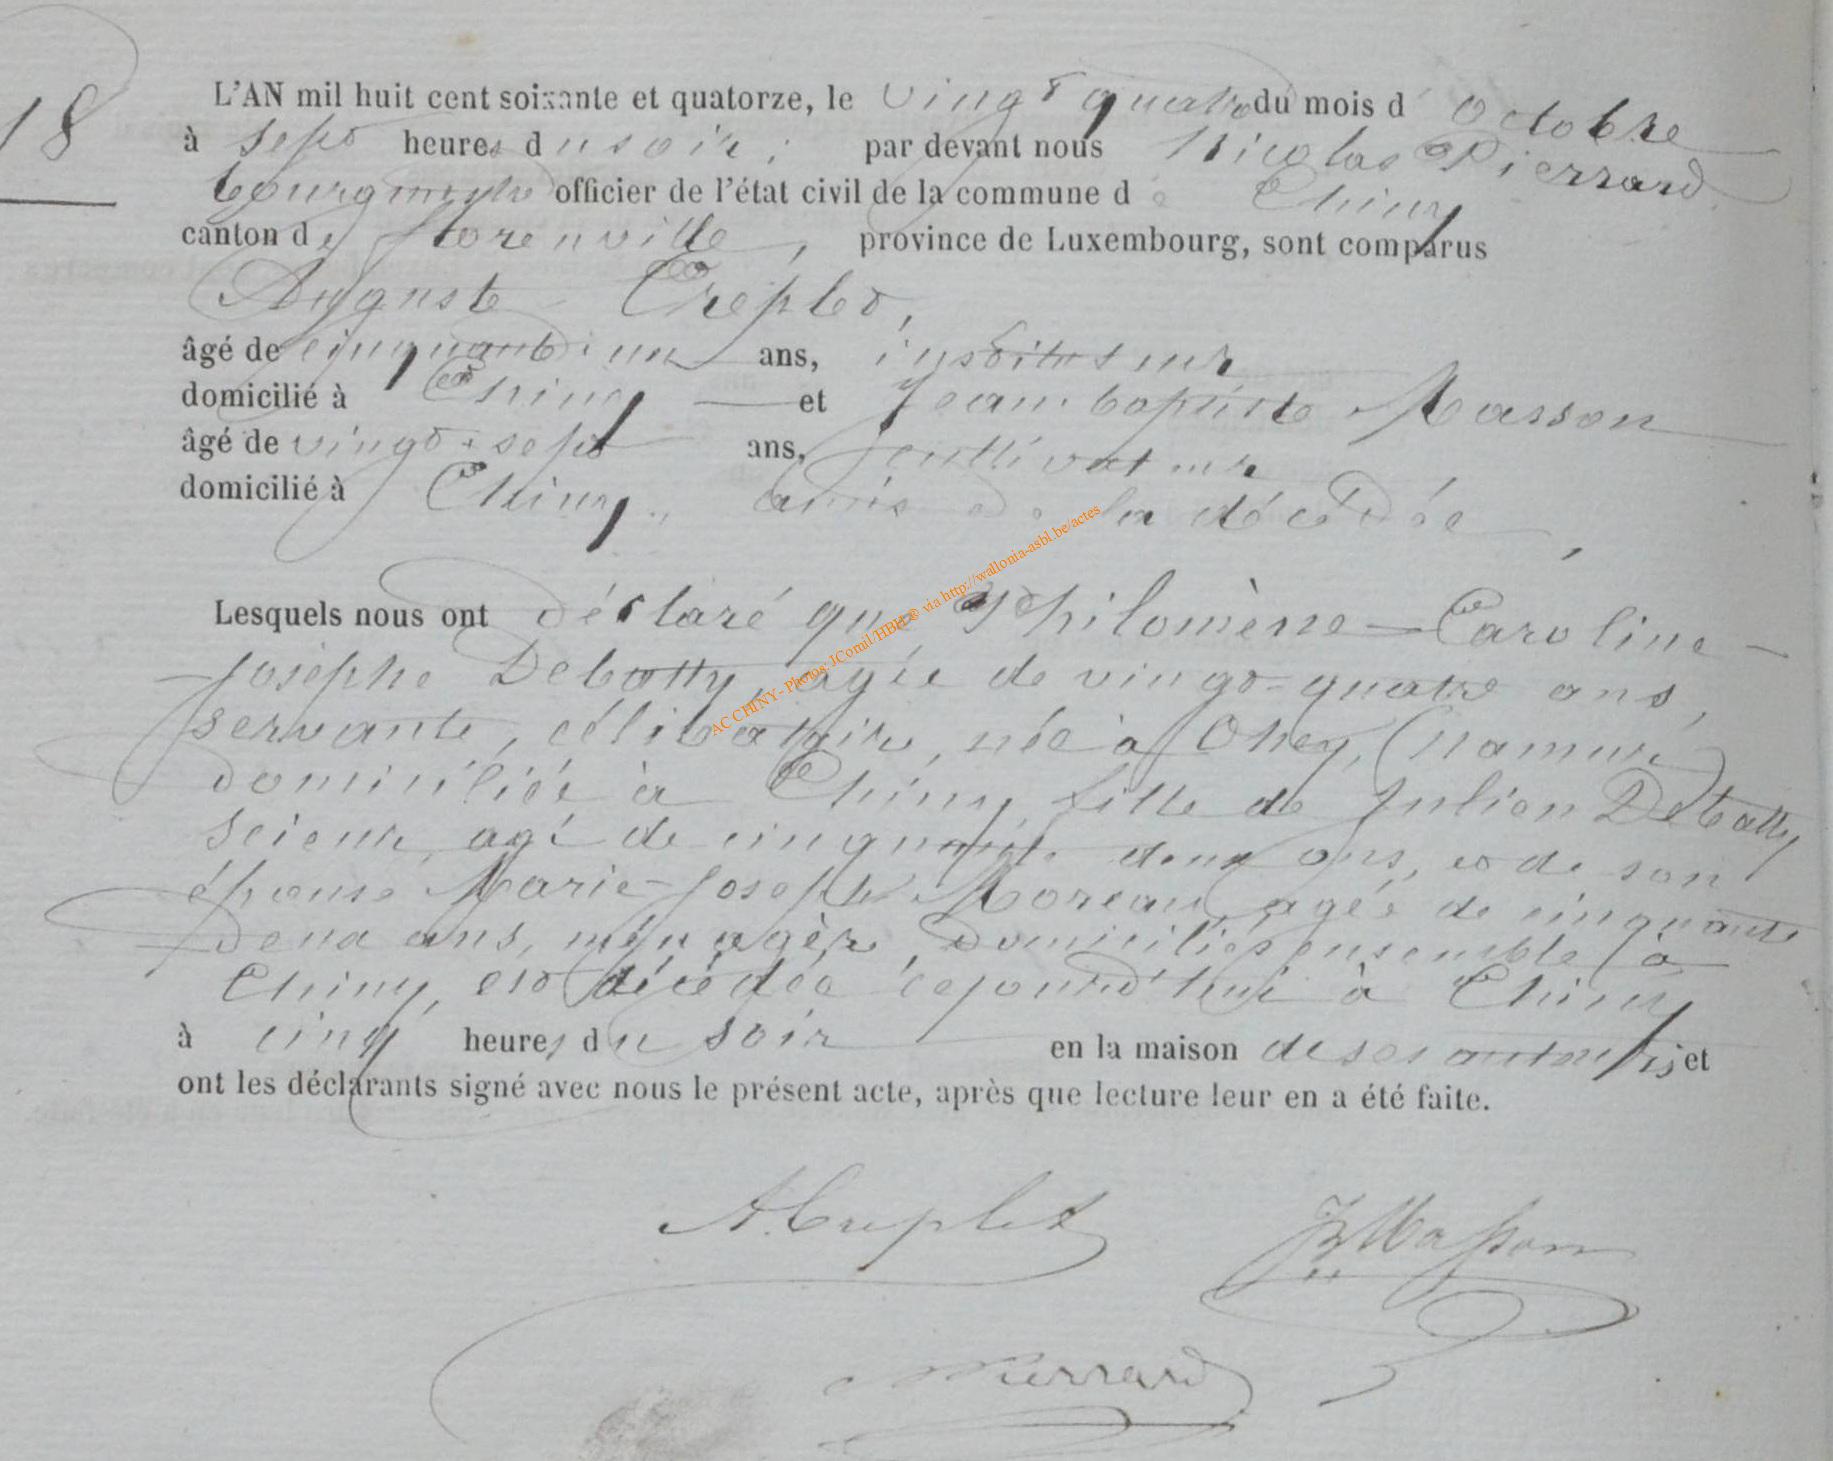 18
L'AN mil huit cent soixante et quatorze, le vingt quatre du mois d'octobre
à sept heures du soir, par devant nous Nicolas Pierrard
bourgmestre officier de l'état civil de la commune de Chiny
canton de florenville, province de Luxembourg, sont comparus
Auguste Creplet,
âgé de cinquante-un ans, instituteur
domicilié à Chiny et Jean baptiste Masson
âgé de vingt-sept ans, cultivateur
domicilié à Chiny, amis de la décédée,
Lesquels nous ont déclaré que Philomène-Caroline-
Josèphe Debatty, agée de vingt-quatre ans,
servante, célibataire, née à Ohey, (namur)
domiciliée à Chiny, fille de Julien Debatty
scieur, agé de cinquante deux ans, et de son
épouse Marie-Joseph Moreau, agée de cinquante
deux ans, ménagère, domiciliés ensemble à
Chiny, est décédée cejourd'hui à Chiny
à cinq heures du soir en la maison de ses et
ont les déclarants signé avec nous le présent acte, après que lecture leur en a été faite.
A. Creplet JB Masson
Pierrard
AC CHINY - Photos: JComil/HBH © via http://wallonia-asbl.be/actes